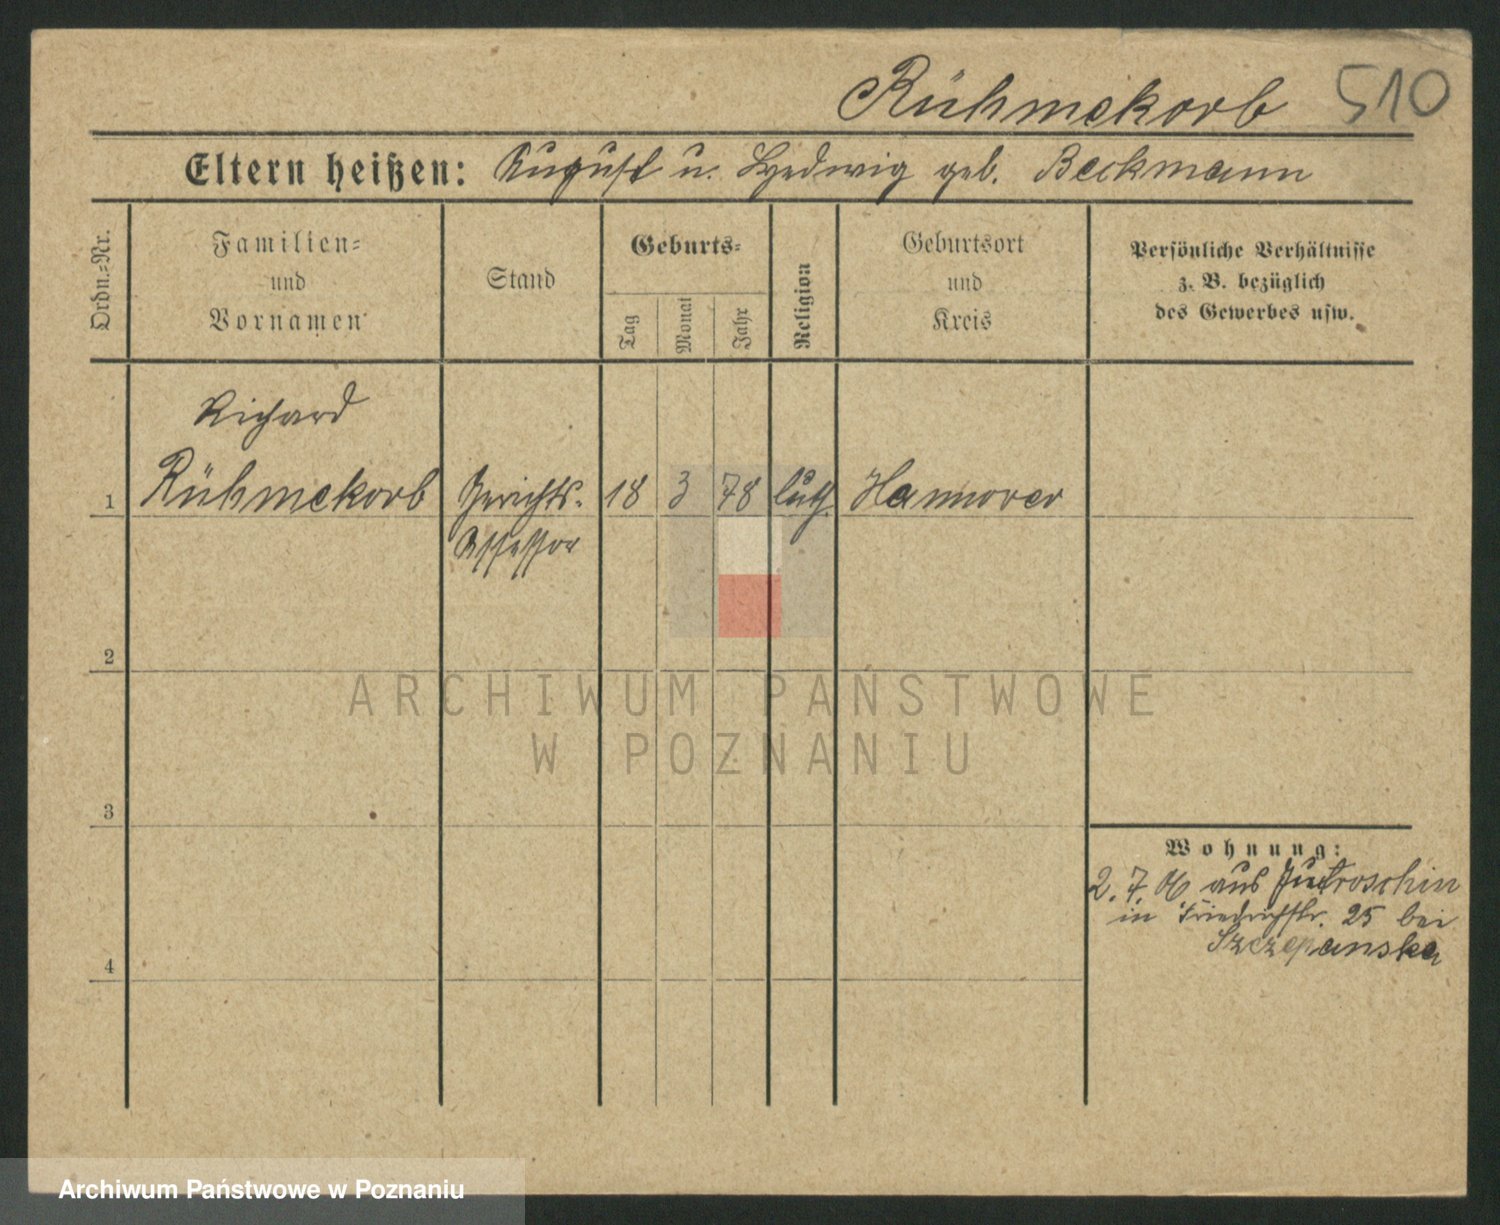 Rühmekorb 510
Eltern heißen: August u. Hedwig geb. Beckmann
Ordn.-Nr.
Familien-
und
Vornamen
Stand
Geburts-
Tag
Monat
Jahr
Religion
Geburtsort
und
Kreis
Persönliche Verhältnisse
z. B. bezüglich
des Gewerbes usw.
Richard
1 Rühmekorb Gerichts- 18 3 78 luth. Hannover
Assessor
2
ARCHIWUM PAŃSTWOWE
W POZNANIU
3
Wohnung:
2. 7. 06 aus Jutroschin
in Friedrichstr. 25 bei
Szczepanska
4
Archiwum Państwowe w Poznaniu